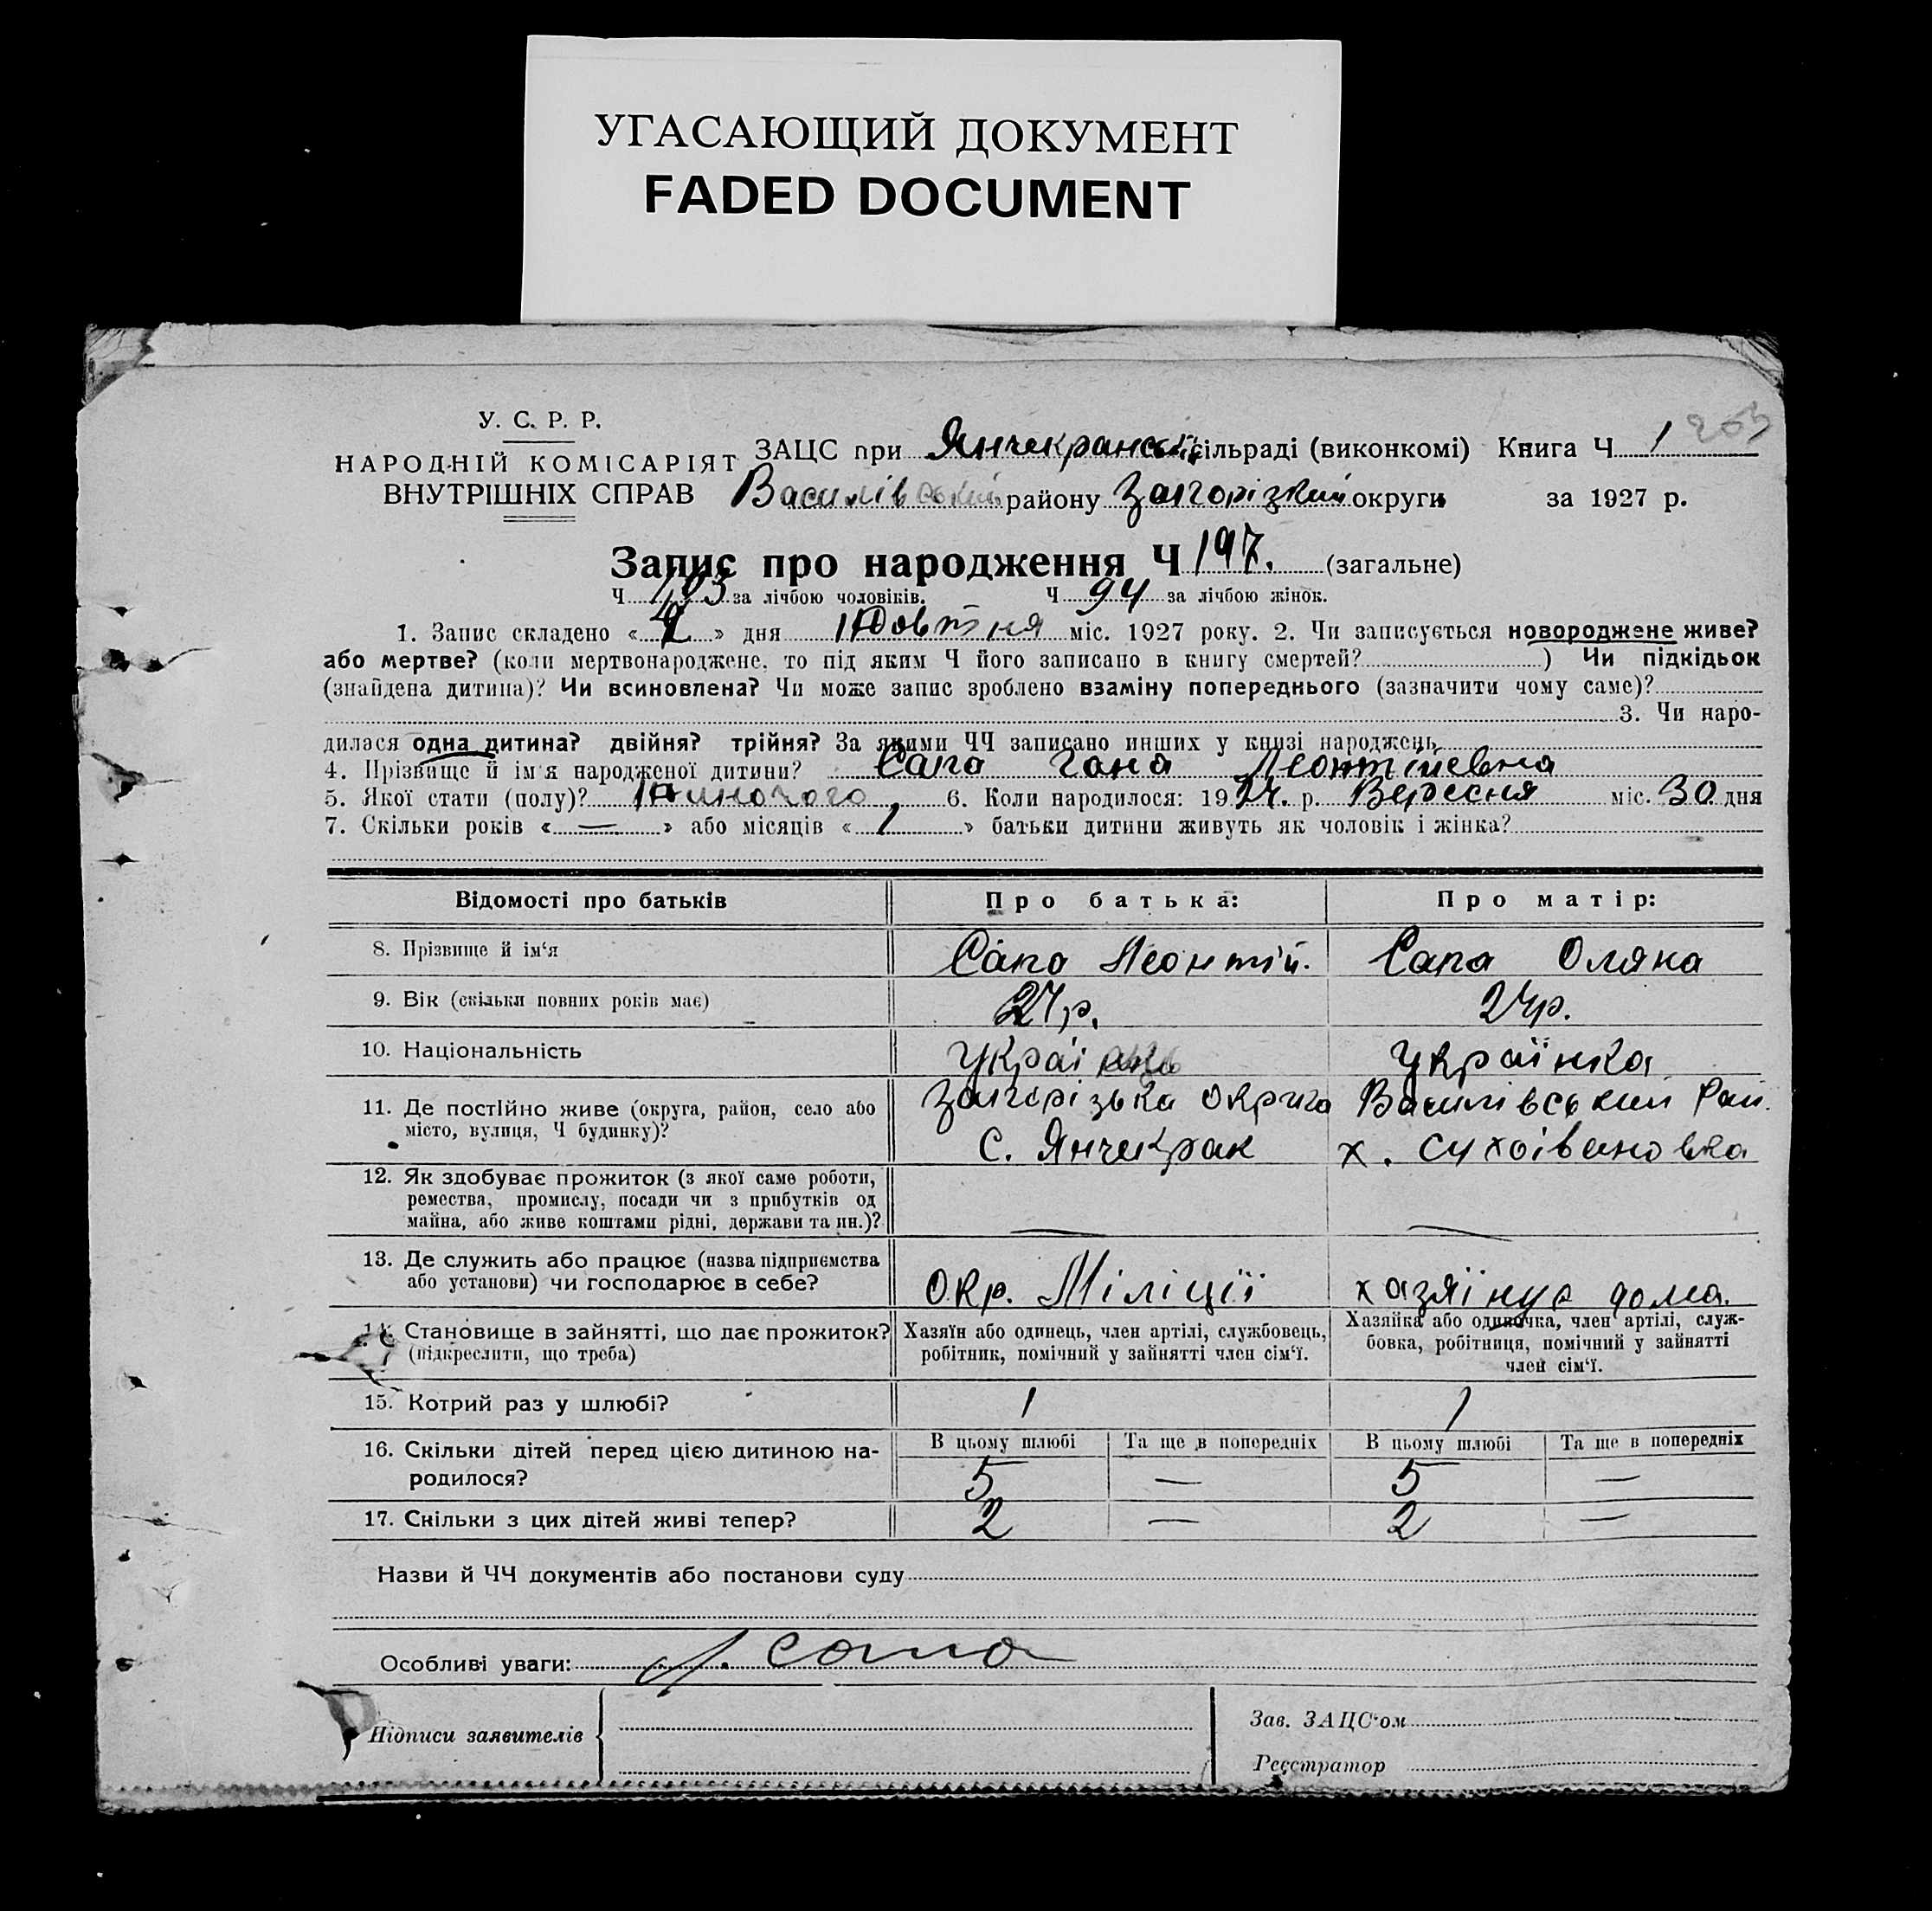 УГАСАЮЩИЙ ДОКУМЕНТ
FADED DOCUMENT
У. С. Р. Р.
НАРОДНІЙ КОМІСАРІЯТ
ВНУТРІШНІХ СПРАВ
ЗАЦС при Янчекранській сільраді (виконкомі) Книга Ч 1 203
Василівський району Запорізький округи за 1927 р.
Запис про народження Ч 197. (загальне)
Ч 103 за лічбою чоловіків. Ч 94 за лічбою жінок.
1. Запис складено « » дня Жовтня міс. 1927 року. 2. Чи записується новороджене живе?
або мертве? (коли мертвонароджене, то під яким Ч його записано в книгу смертей? ) Чи підкідьок
(знайдена дитина)? Чи всиновлена? Чи може запис зроблено взаміну попереднього (зазначити чому саме)?
3. Чи наро-
дилася одна дитина? двійня? трійня? За якими ЧЧ записано инших у книзі народжень
4. Прізвище й ім'я народженої дитини? Сапа Гана Леонтіївна
5. Якої стати (полу)? Жиночого 6. Коли народилося: 1927. р. Вересня міс. 30 дня
7. Скільки років « — » або місяців « 1 » батьки дитини живуть як чоловік і жінка?
Відомості про батьків Про батька: Про матір:
8. Прізвище й ім'я Сапа Леонтій. Сапа Оляна
9. Вік (скільки повних років має) 27 р. 24 р.
10. Національність Українка
11. Де постійно живе (округа, район, село або Запорізька округа Василівський Рай.
місто, вулиця, Ч будинку)? С. Янчекрак х. Сухоівановка
12. Як здобуває прожиток (з якої саме роботи,
ремества, промислу, посади чи з прибутків од
майна, або живе коштами рідні, держави та ин.)? — —
13. Де служить або працює (назва підприємства
або установи) чи господарює в себе? Окр. Міліції хазяїнує дома.
14. Становище в зайнятті, що дає прожиток? Хазяїн або одинець, член артілі, службовець, Хазяйка або одиначка, член артілі, служ-
(підкреслити, що треба) робітник, помічний у зайнятті член сім'ї. бовка, робітниця, помічний у зайнятті
член сім'ї.
15. Котрий раз у шлюбі? 1 1
16. Скільки дітей перед цією дитиною на- В цьому шлюбі Та ще в попередніх В цьому шлюбі Та ще в попередніх
родилося? 5 — 5 —
17. Скільки з цих дітей живі тепер? 2 — 2 —
Назви й ЧЧ документів або постанови суду
Особливі уваги: Сапа
Підписи заявителів
Зав. ЗАЦС'ом
Реєстратор